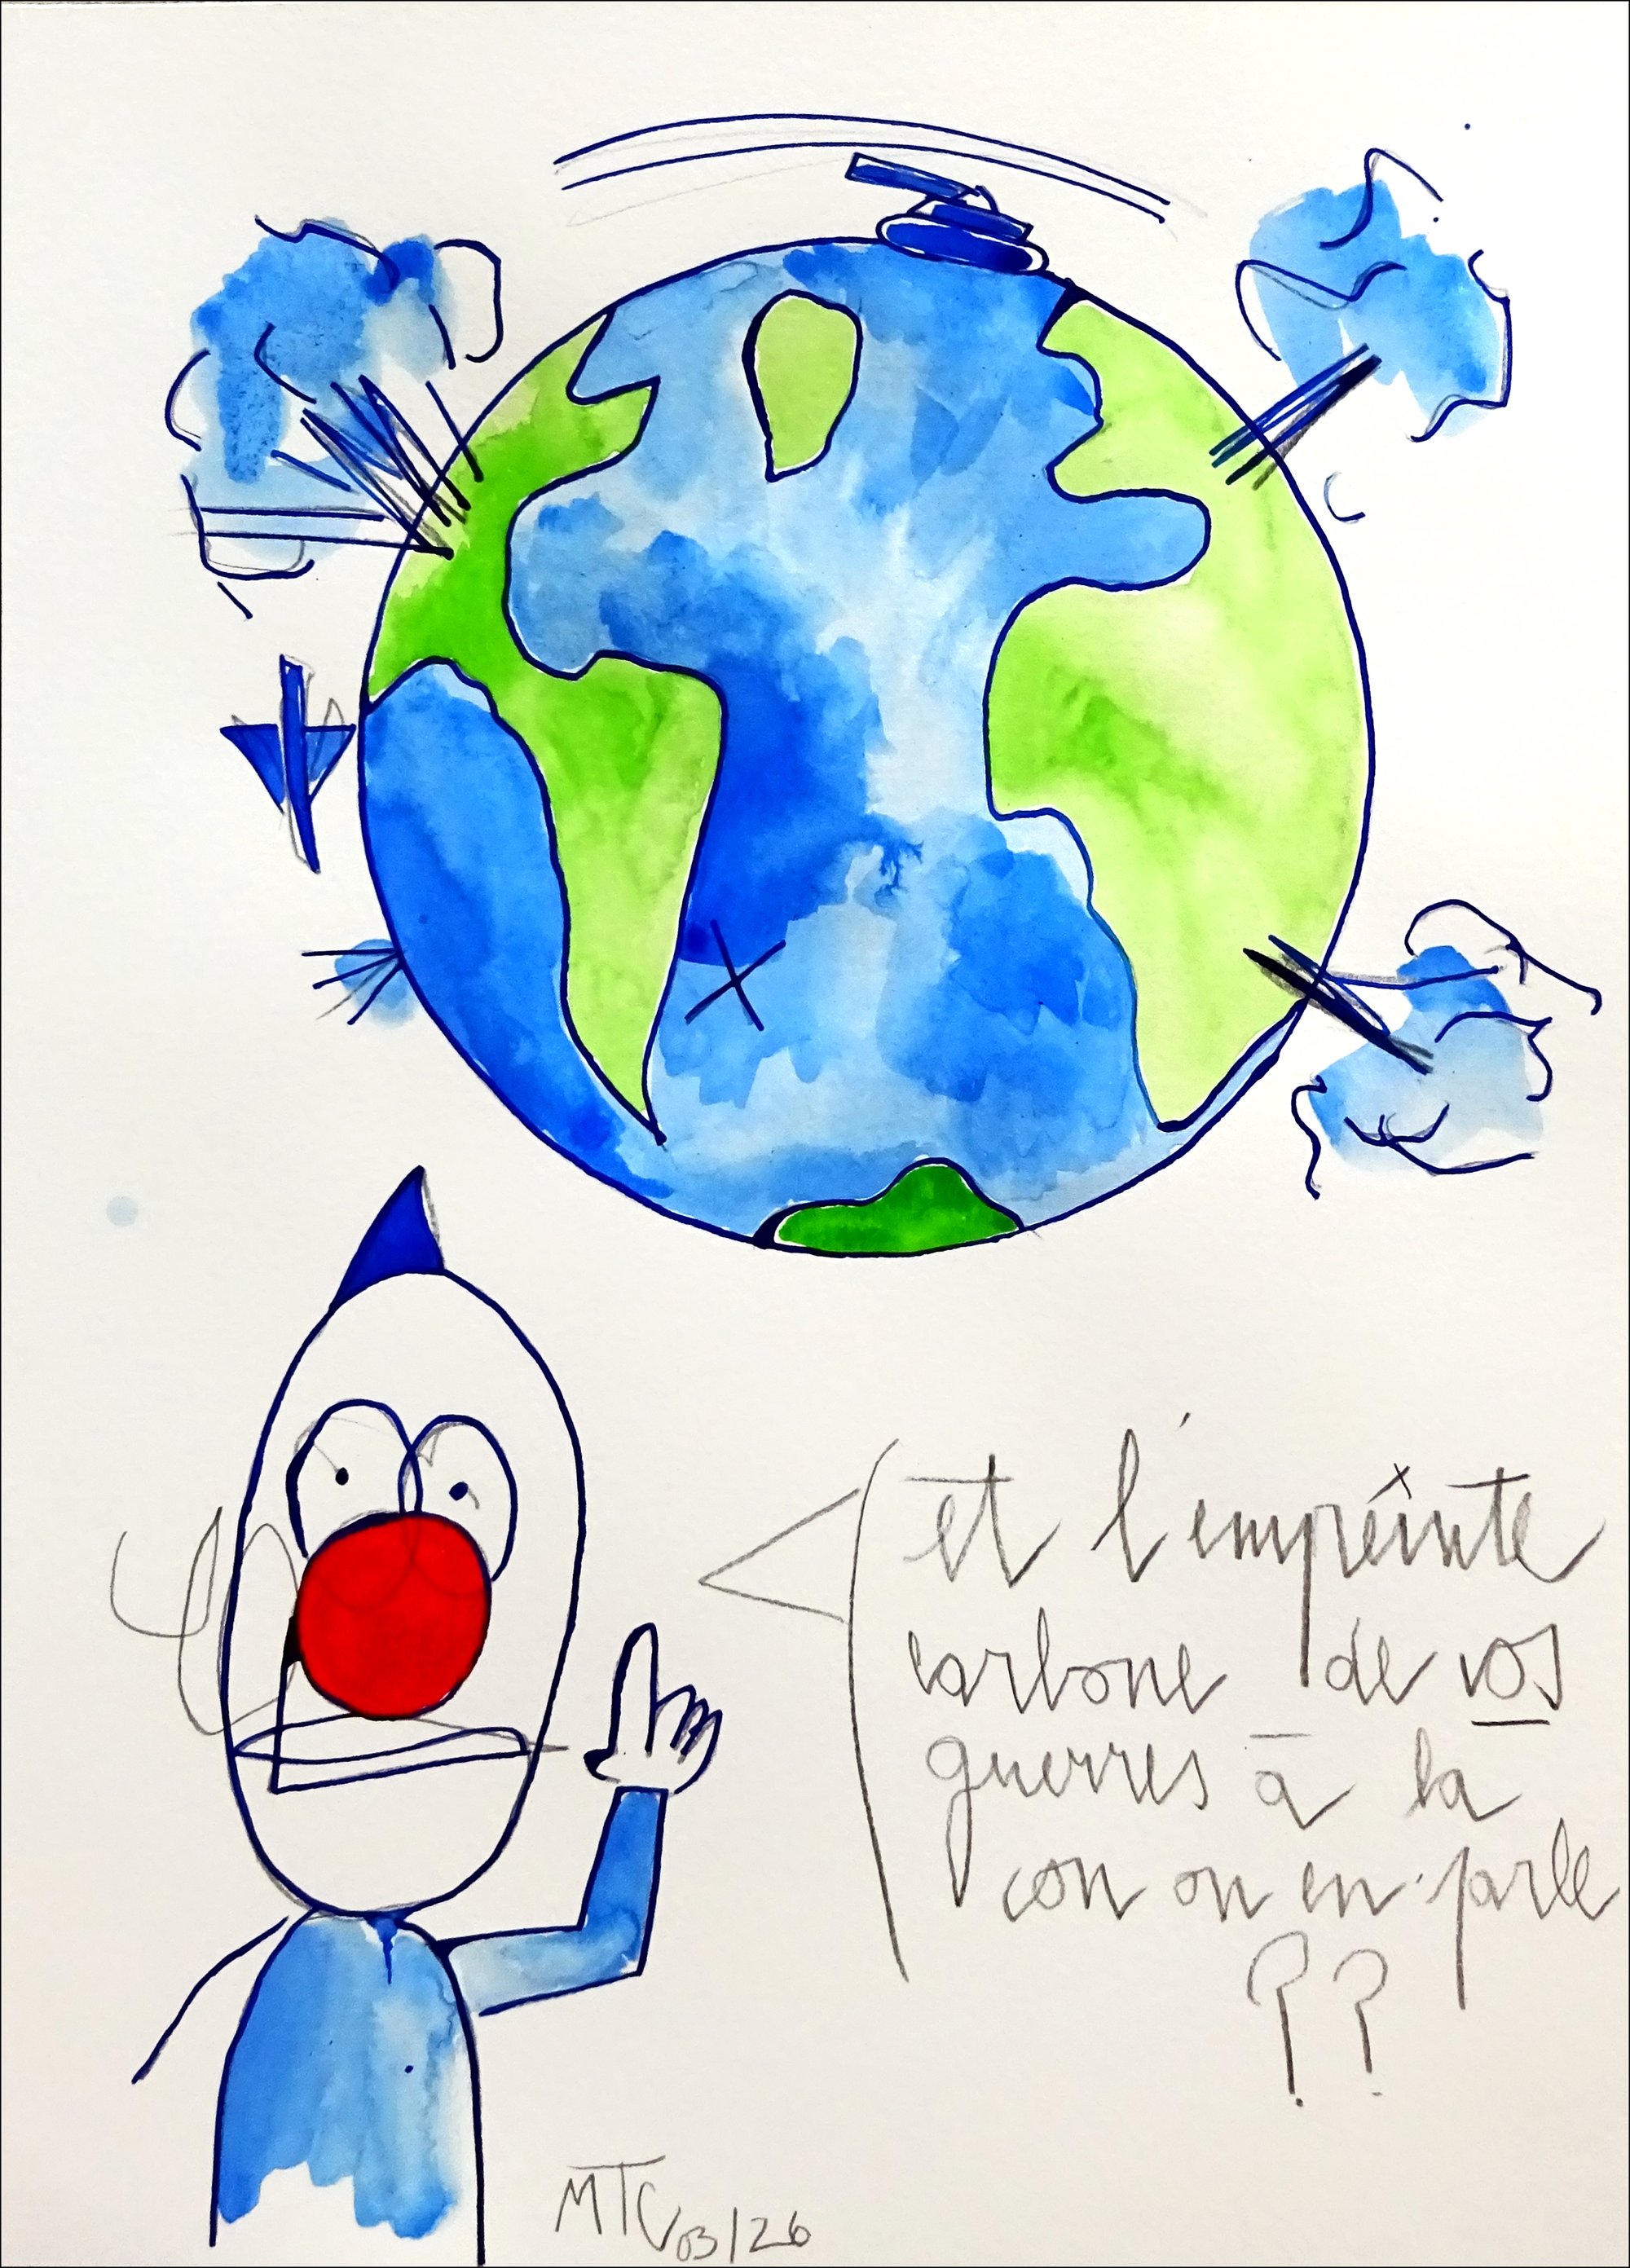 et l'empreînte
carbone de vos
guerres à la
con on en parle
??
MTC 03/26